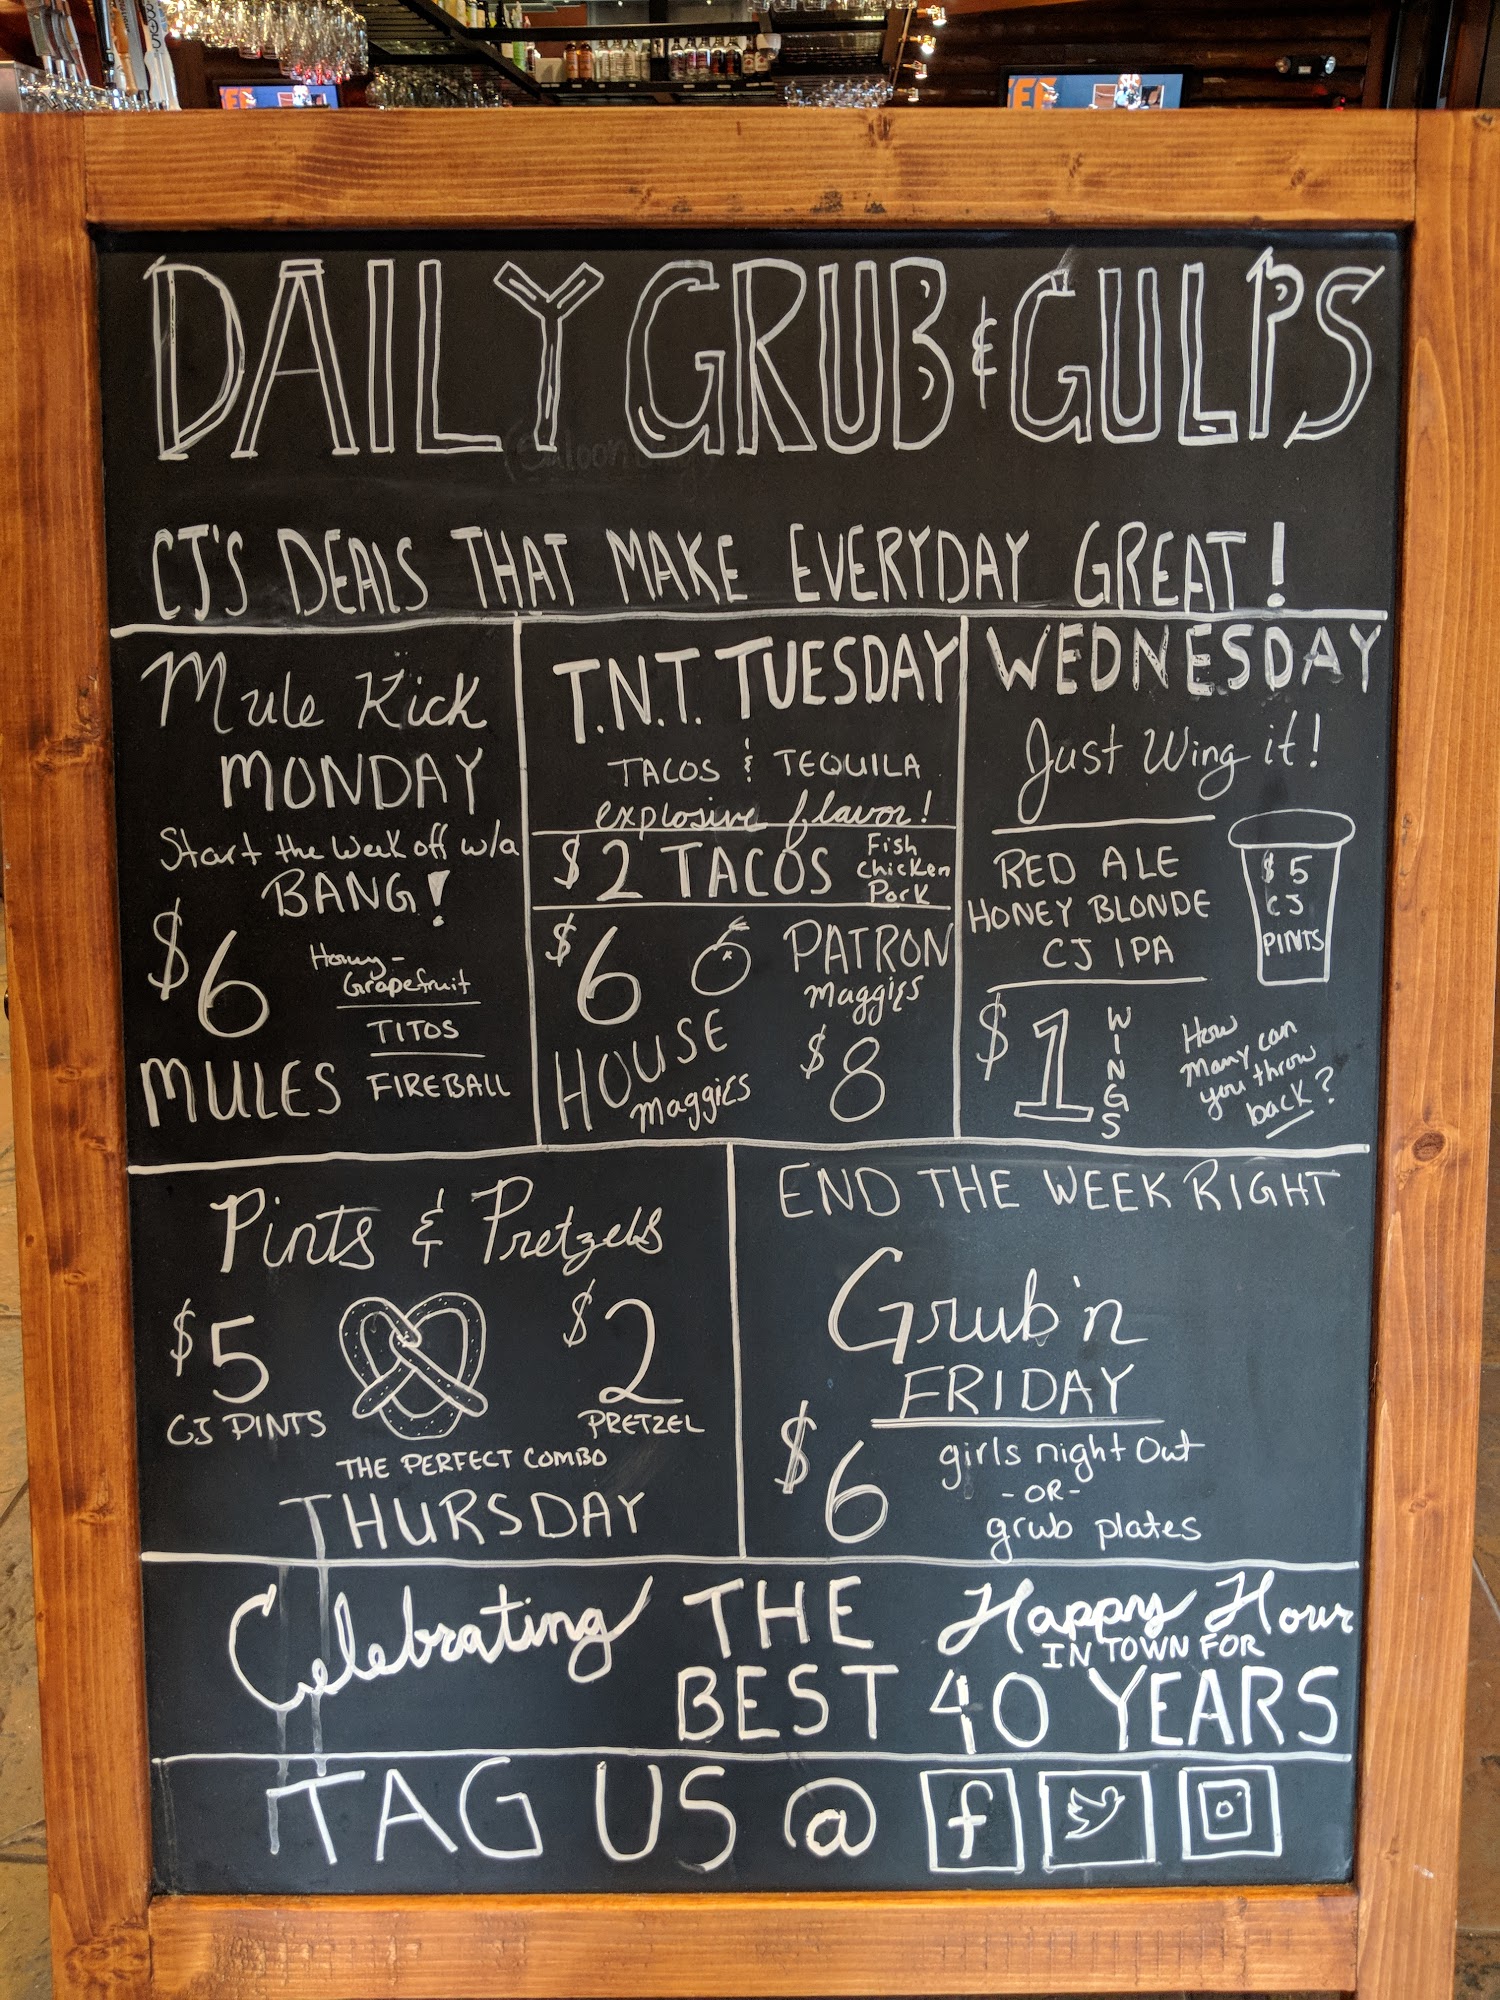 DAILY GRUB & GULPS
CJ'S DEALS THAT MAKE EVERYDAY GREAT!
Mule Kick
MONDAY
Start the week off w/a
BANG!
$6
MULES
Honey-
Grapefruit
TITOS
FIREBALL
T.N.T. TUESDAY
TACOS & TEQUILA
explosive flavor!
$2 TACOS
Fish
Chicken
Pork
$6
HOUSE
Maggies
PATRON
Maggies
$8
WEDNESDAY
Just Wing it!
RED ALE
HONEY BLONDE
CJ IPA
$5
CJ
PINTS
$1
WINGS
How
Many can
you throw
back?
Pints & Pretzels
$5
CJ PINTS
$2
PRETZEL
THE PERFECT COMBO
THURSDAY
END THE WEEK RIGHT
Grub'n
FRIDAY
$6
girls night Out
-OR-
grub plates
Celebrating THE
BEST
Happy Hour
IN TOWN FOR
40 YEARS
TAG US @